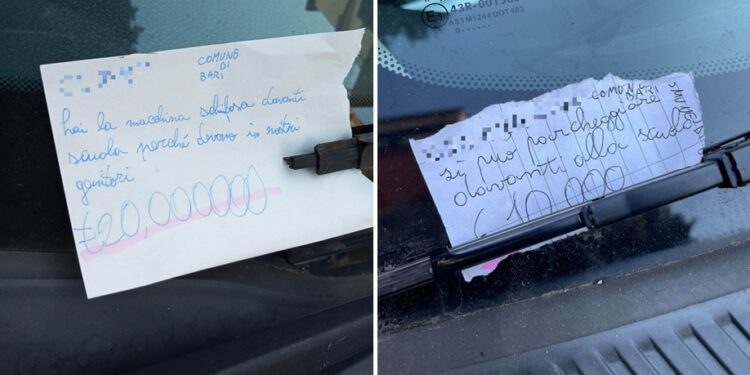 COMUNE
DI
BARI
hai la macchina schifosa davanti
scuola perché devono i nostri
genitori
€20,0000000
E1 43R-001583
AS1M1244DOT682
0
COMUNE
BARI
si può parcheggiare
davanti alla scuola
€ 10.000